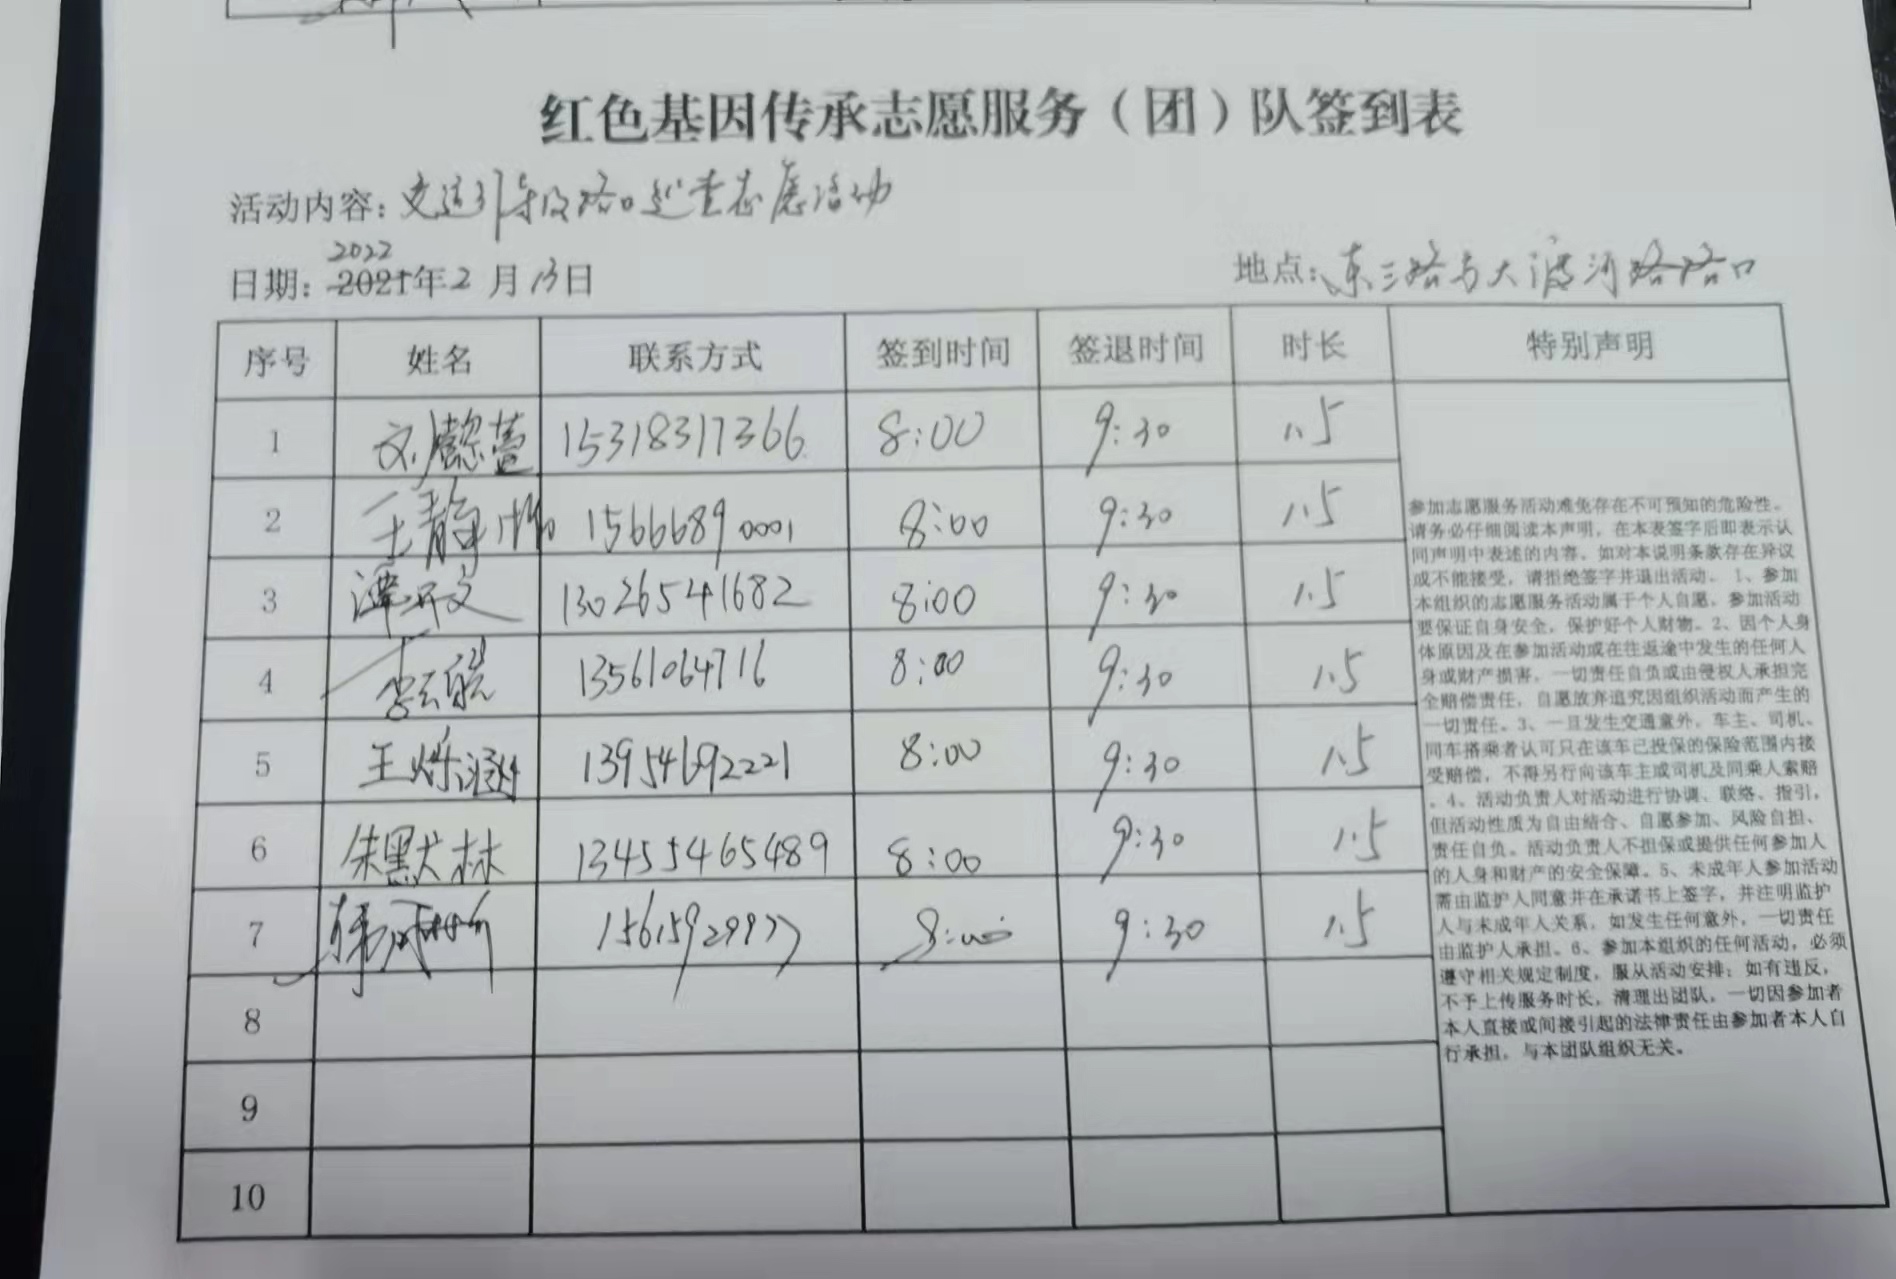 红色基因传承志愿服务（团）队签到表
活动内容：交通引导及路口巡查志愿活动
2022
日期：2021年2月13日 地点：东三路与大渡河路路口
序号 姓名 联系方式 签到时间 签退时间 时长 特别声明
1 15318317366 8:00 9:30 1.5
2 王静 15666890001 8:00 9:30 1.5
3 13026541682 8:00 9:30 1.5
4 13561064716 8:00 9:30 1.5
5 王烁涵 13954692221 8:00 9:30 1.5
6 朱黑犬林 13455465489 8:00 9:30 1.5
7 8:00 9:30 1.5
8
9
10
参加志愿服务活动难免存在不可预知的危险性。
请务必仔细阅读本声明，在本表签字后即表示认
同声明中表述的内容。如对本说明条款存在异议
或不能接受，请拒绝签字并退出活动。1、参加
本组织的志愿服务活动属于个人自愿，参加活动
要保证自身安全，保护好个人财物。2、因个人身
体原因及在参加活动或在往返途中发生的任何人
身或财产损害，一切责任自负或由侵权人承担完
全赔偿责任，自愿放弃追究因组织活动而产生的
一切责任。3、一旦发生交通意外，车主、司机、
同车搭乘者认可只在该车已投保的保险范围内接
受赔偿，不得另行向该车主或司机及同乘人索赔
。4、活动负责人对活动进行协调、联络、指引，
但活动性质为自由结合、自愿参加、风险自担、
责任自负。活动负责人不担保或提供任何参加人
的人身和财产的安全保障。5、未成年人参加活动
需由监护人同意并在承诺书上签字，并注明监护
人与未成年人关系，如发生任何意外，一切责任
由监护人承担。6、参加本组织的任何活动，必须
遵守相关规定制度，服从活动安排；如有违反，
不予上传服务时长，清理出团队，一切因参加者
本人直接或间接引起的法律责任由参加者本人自
行承担，与本团队组织无关。